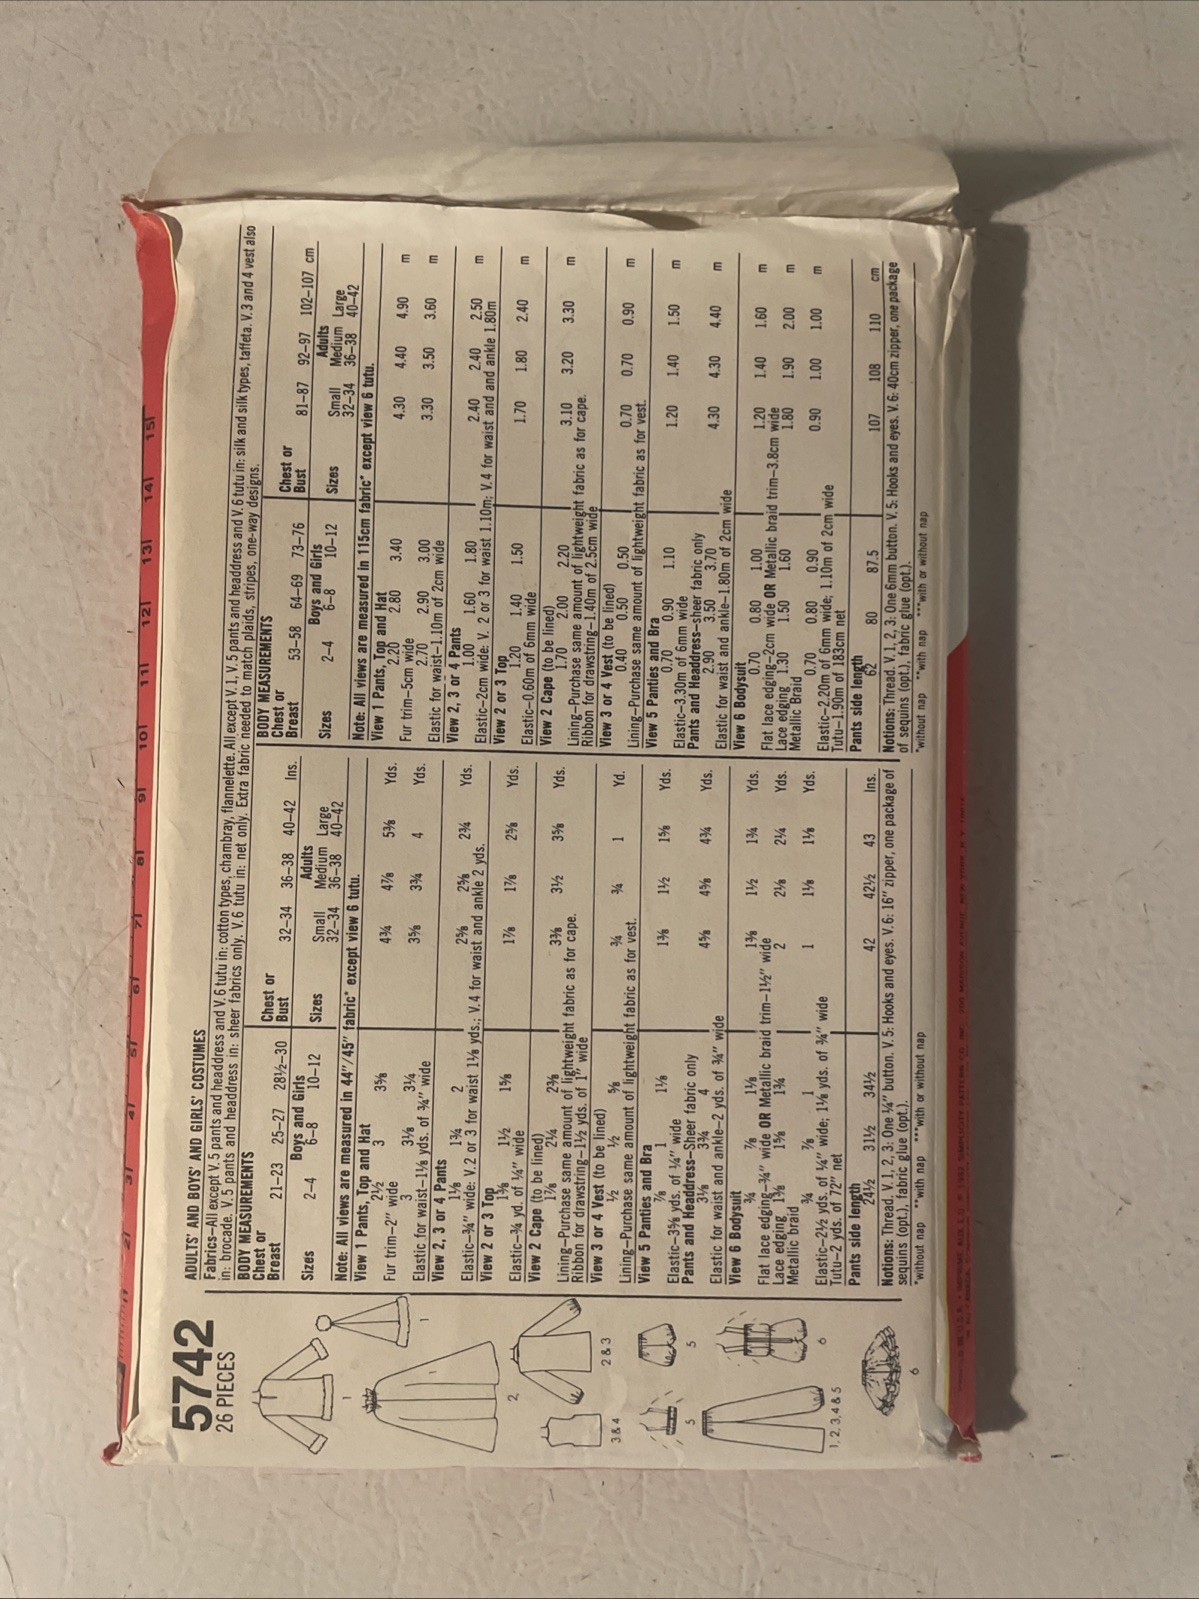 5742
26 PIECES
1
1
2
2 & 3
3 & 4
5
5
6
1, 2, 3, 4 & 5
6
ADULTS' AND BOYS' AND GIRLS' COSTUMES
Fabrics—All except V. 5 pants and headdress and V. 6 tutu in: cotton types, chambray, flannelette. All except V. 1, V. 5 pants and headdress and V. 6 tutu in: silk and silk types, taffeta. V. 3 and 4 vest also
in: brocade. V. 5 pants and headdress in: sheer fabrics only. V. 6 tutu in: net only. Extra fabric needed to match plaids, stripes, one-way designs.
BODY MEASUREMENTS
Chest or Breast 21–23 25–27 28½–30 Chest or Bust 32–34 36–38 40–42 Ins.
Boys and Girls Adults
Small Medium Large
Sizes 2–4 6–8 10–12 Sizes 32–34 36–38 40–42
Note: All views are measured in 44"/45" fabric* except view 6 tutu.
View 1 Pants, Top and Hat
2½ 3 3⅜ 4¾ 4⅞ 5⅜ Yds.
Fur trim–2" wide
3 3⅛ 3¼ 3⅝ 3¾ 4 Yds.
Elastic for waist–1⅛ yds. of ¾" wide
View 2, 3 or 4 Pants
1⅛ 1¾ 2 2⅝ 2⅝ 2¾ Yds.
Elastic–¾" wide: V. 2 or 3 for waist 1⅛ yds.; V. 4 for waist and ankle 2 yds.
View 2 or 3 Top
1⅜ 1½ 1⅝ 1⅞ 1⅞ 2⅝ Yds.
Elastic–¾ yd. of ¼" wide
View 2 Cape (to be lined)
1⅞ 2¼ 2⅜ 3⅜ 3½ 3⅝ Yds.
Lining–Purchase same amount of lightweight fabric as for cape.
Ribbon for drawstring–1½ yds. of 1" wide
View 3 or 4 Vest (to be lined)
½ ½ ⅝ ¾ ¾ 1 Yd.
Lining–Purchase same amount of lightweight fabric as for vest.
View 5 Panties and Bra
⅞ 1 1⅛ 1⅜ 1½ 1⅝ Yds.
Elastic–3⅝ yds. of ¼" wide
Pants and Headdress–Sheer fabric only
3⅛ 3¾ 4 4⅝ 4⅝ 4¾ Yds.
Elastic for waist and ankle–2 yds. of ¾" wide
View 6 Bodysuit
¾ ⅞ 1⅛ 1⅜ 1½ 1¾ Yds.
Flat lace edging–¾" wide OR Metallic braid trim–1½" wide
Lace edging 1⅜ 1⅝ 1¾ 2 2⅛ 2¼ Yds.
Metallic braid
¾ ⅞ 1 1 1⅛ 1⅛ Yds.
Elastic–2½ yds. of ¼" wide; 1⅛ yds. of ¾" wide
Tutu–2 yds. of 72" net
Pants side length
24½ 31½ 34½ 42 42½ 43 Ins.
Notions: Thread. V. 1, 2, 3: One ¼" button. V. 5: Hooks and eyes. V. 6: 16" zipper, one package of
sequins (opt.), fabric glue (opt.).
*without nap **with nap ***with or without nap
BODY MEASUREMENTS
Chest or Breast 53–58 64–69 73–76 Chest or Bust 81–87 92–97 102–107 cm
Boys and Girls Adults
Small Medium Large
Sizes 2–4 6–8 10–12 Sizes 32–34 36–38 40–42
Note: All views are measured in 115cm fabric* except view 6 tutu.
View 1 Pants, Top and Hat
2.20 2.80 3.40 4.30 4.40 4.90 m
Fur trim–5cm wide
2.70 2.90 3.00 3.30 3.50 3.60 m
Elastic for waist–1.10m of 2cm wide
View 2, 3 or 4 Pants
1.00 1.60 1.80 2.40 2.40 2.50 m
Elastic–2cm wide: V. 2 or 3 for waist 1.10m; V. 4 for waist and and ankle 1.80m
View 2 or 3 Top
1.20 1.40 1.50 1.70 1.80 2.40 m
Elastic–0.60m of 6mm wide
View 2 Cape (to be lined)
1.70 2.00 2.20 3.10 3.20 3.30 m
Lining–Purchase same amount of lightweight fabric as for cape.
Ribbon for drawstring–1.40m of 2.5cm wide
View 3 or 4 Vest (to be lined)
0.40 0.50 0.50 0.70 0.70 0.90 m
Lining–Purchase same amount of lightweight fabric as for vest.
View 5 Panties and Bra
0.70 0.90 1.10 1.20 1.40 1.50 m
Elastic–3.30m of 6mm wide
Pants and Headdress–sheer fabric only
2.90 3.50 3.70 4.30 4.30 4.40 m
Elastic for waist and ankle–1.80m of 2cm wide
View 6 Bodysuit
0.70 0.80 1.00 1.20 1.40 1.60 m
Flat lace edging–2cm wide OR Metallic braid trim–3.8cm wide
Lace edging 1.30 1.50 1.60 1.80 1.90 2.00 m
Metallic Braid
0.70 0.80 0.90 0.90 1.00 1.00 m
Elastic–2.20m of 6mm wide; 1.10m of 2cm wide
Tutu–1.90m of 183cm net
Pants side length
62 80 87.5 107 108 110 cm
Notions: Thread. V. 1, 2, 3: One 6mm button. V. 5: Hooks and eyes. V. 6: 40cm zipper, one package
of sequins (opt.), fabric glue (opt.).
*without nap **with nap ***with or without nap
2 3 4 5 6 7 8 9 10 11 12 13 14 15